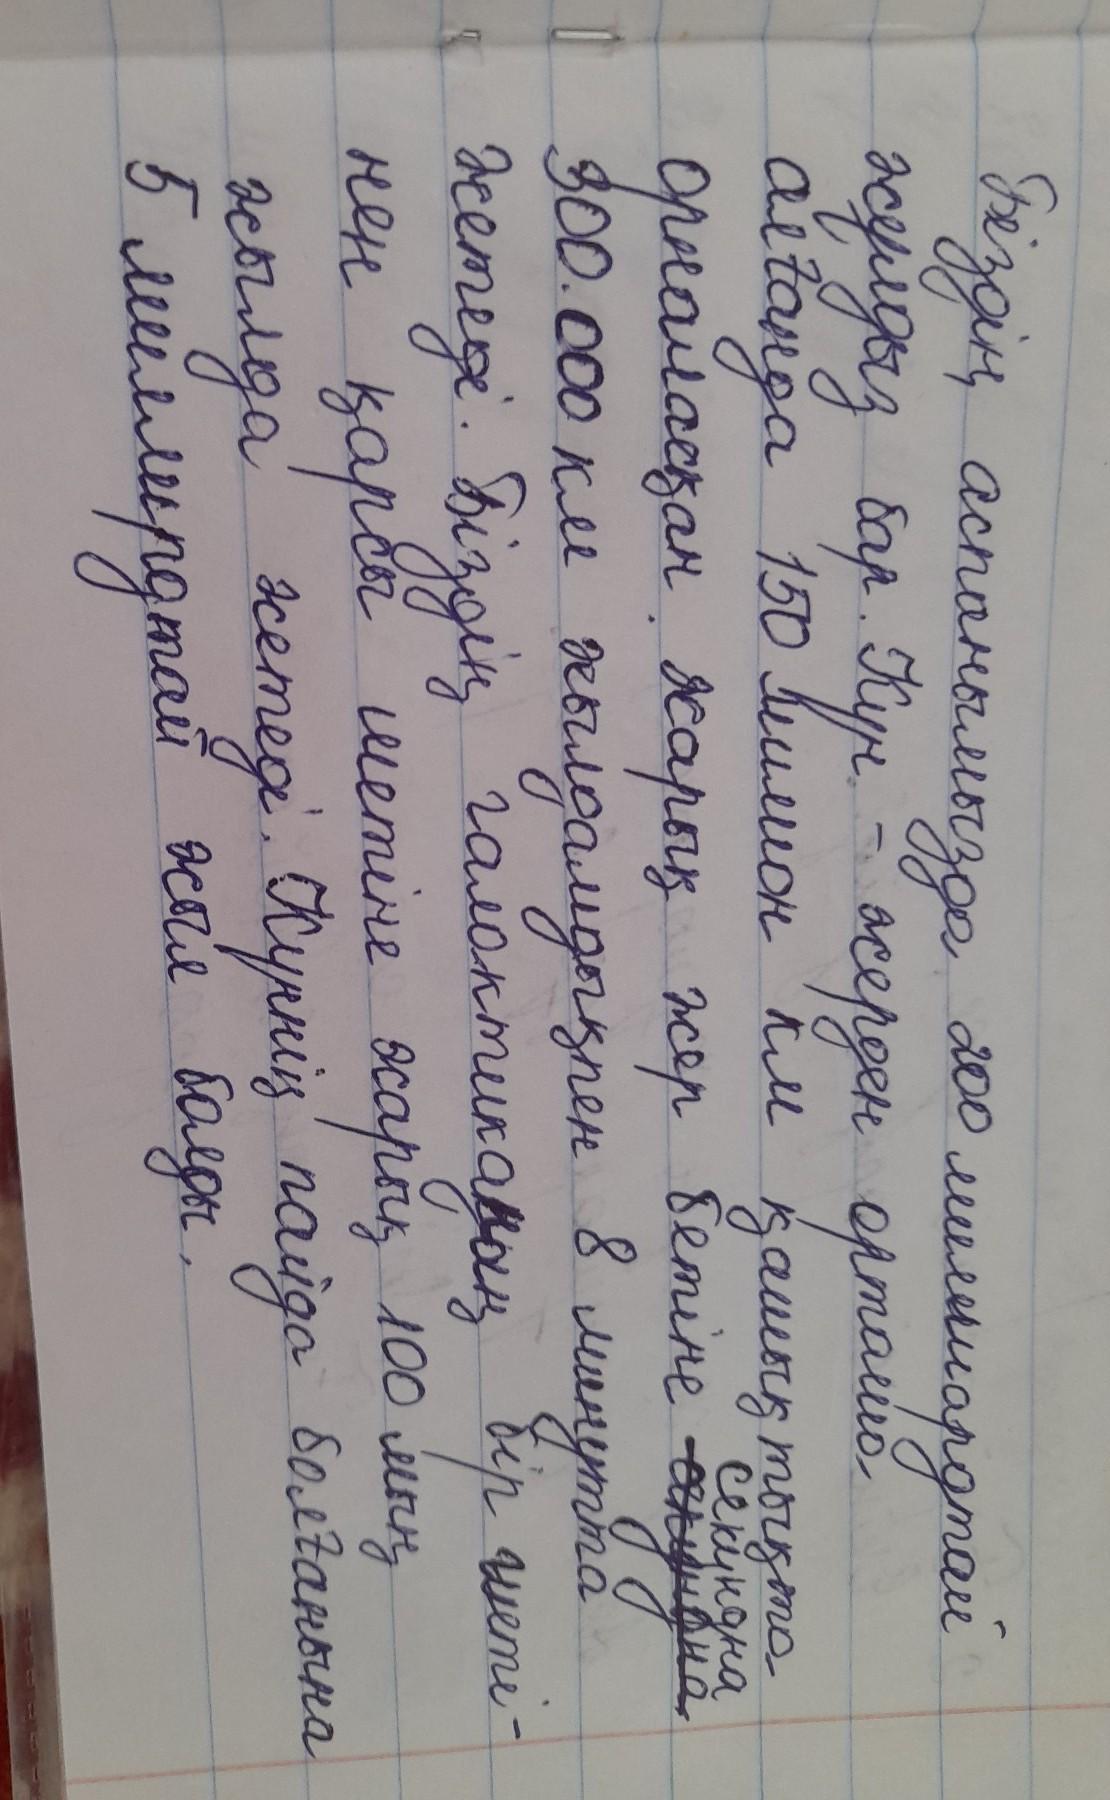 Біздің аспанымызда 200 миллиардтай
жұлдыз бар. Күн - жерден орташа
алғанда 150 миллион км қашықтықта
орналасқан. Жарық жер бетіне секундна
300.000 км жылдамдықпен 8 минутта
жетеді. Біздің галактиканың бір шеті-
нен қарсы шетіне жарық 100 мың
жылда жетеді. Күннің пайда болғанына
5 миллирдтай жыл болды.